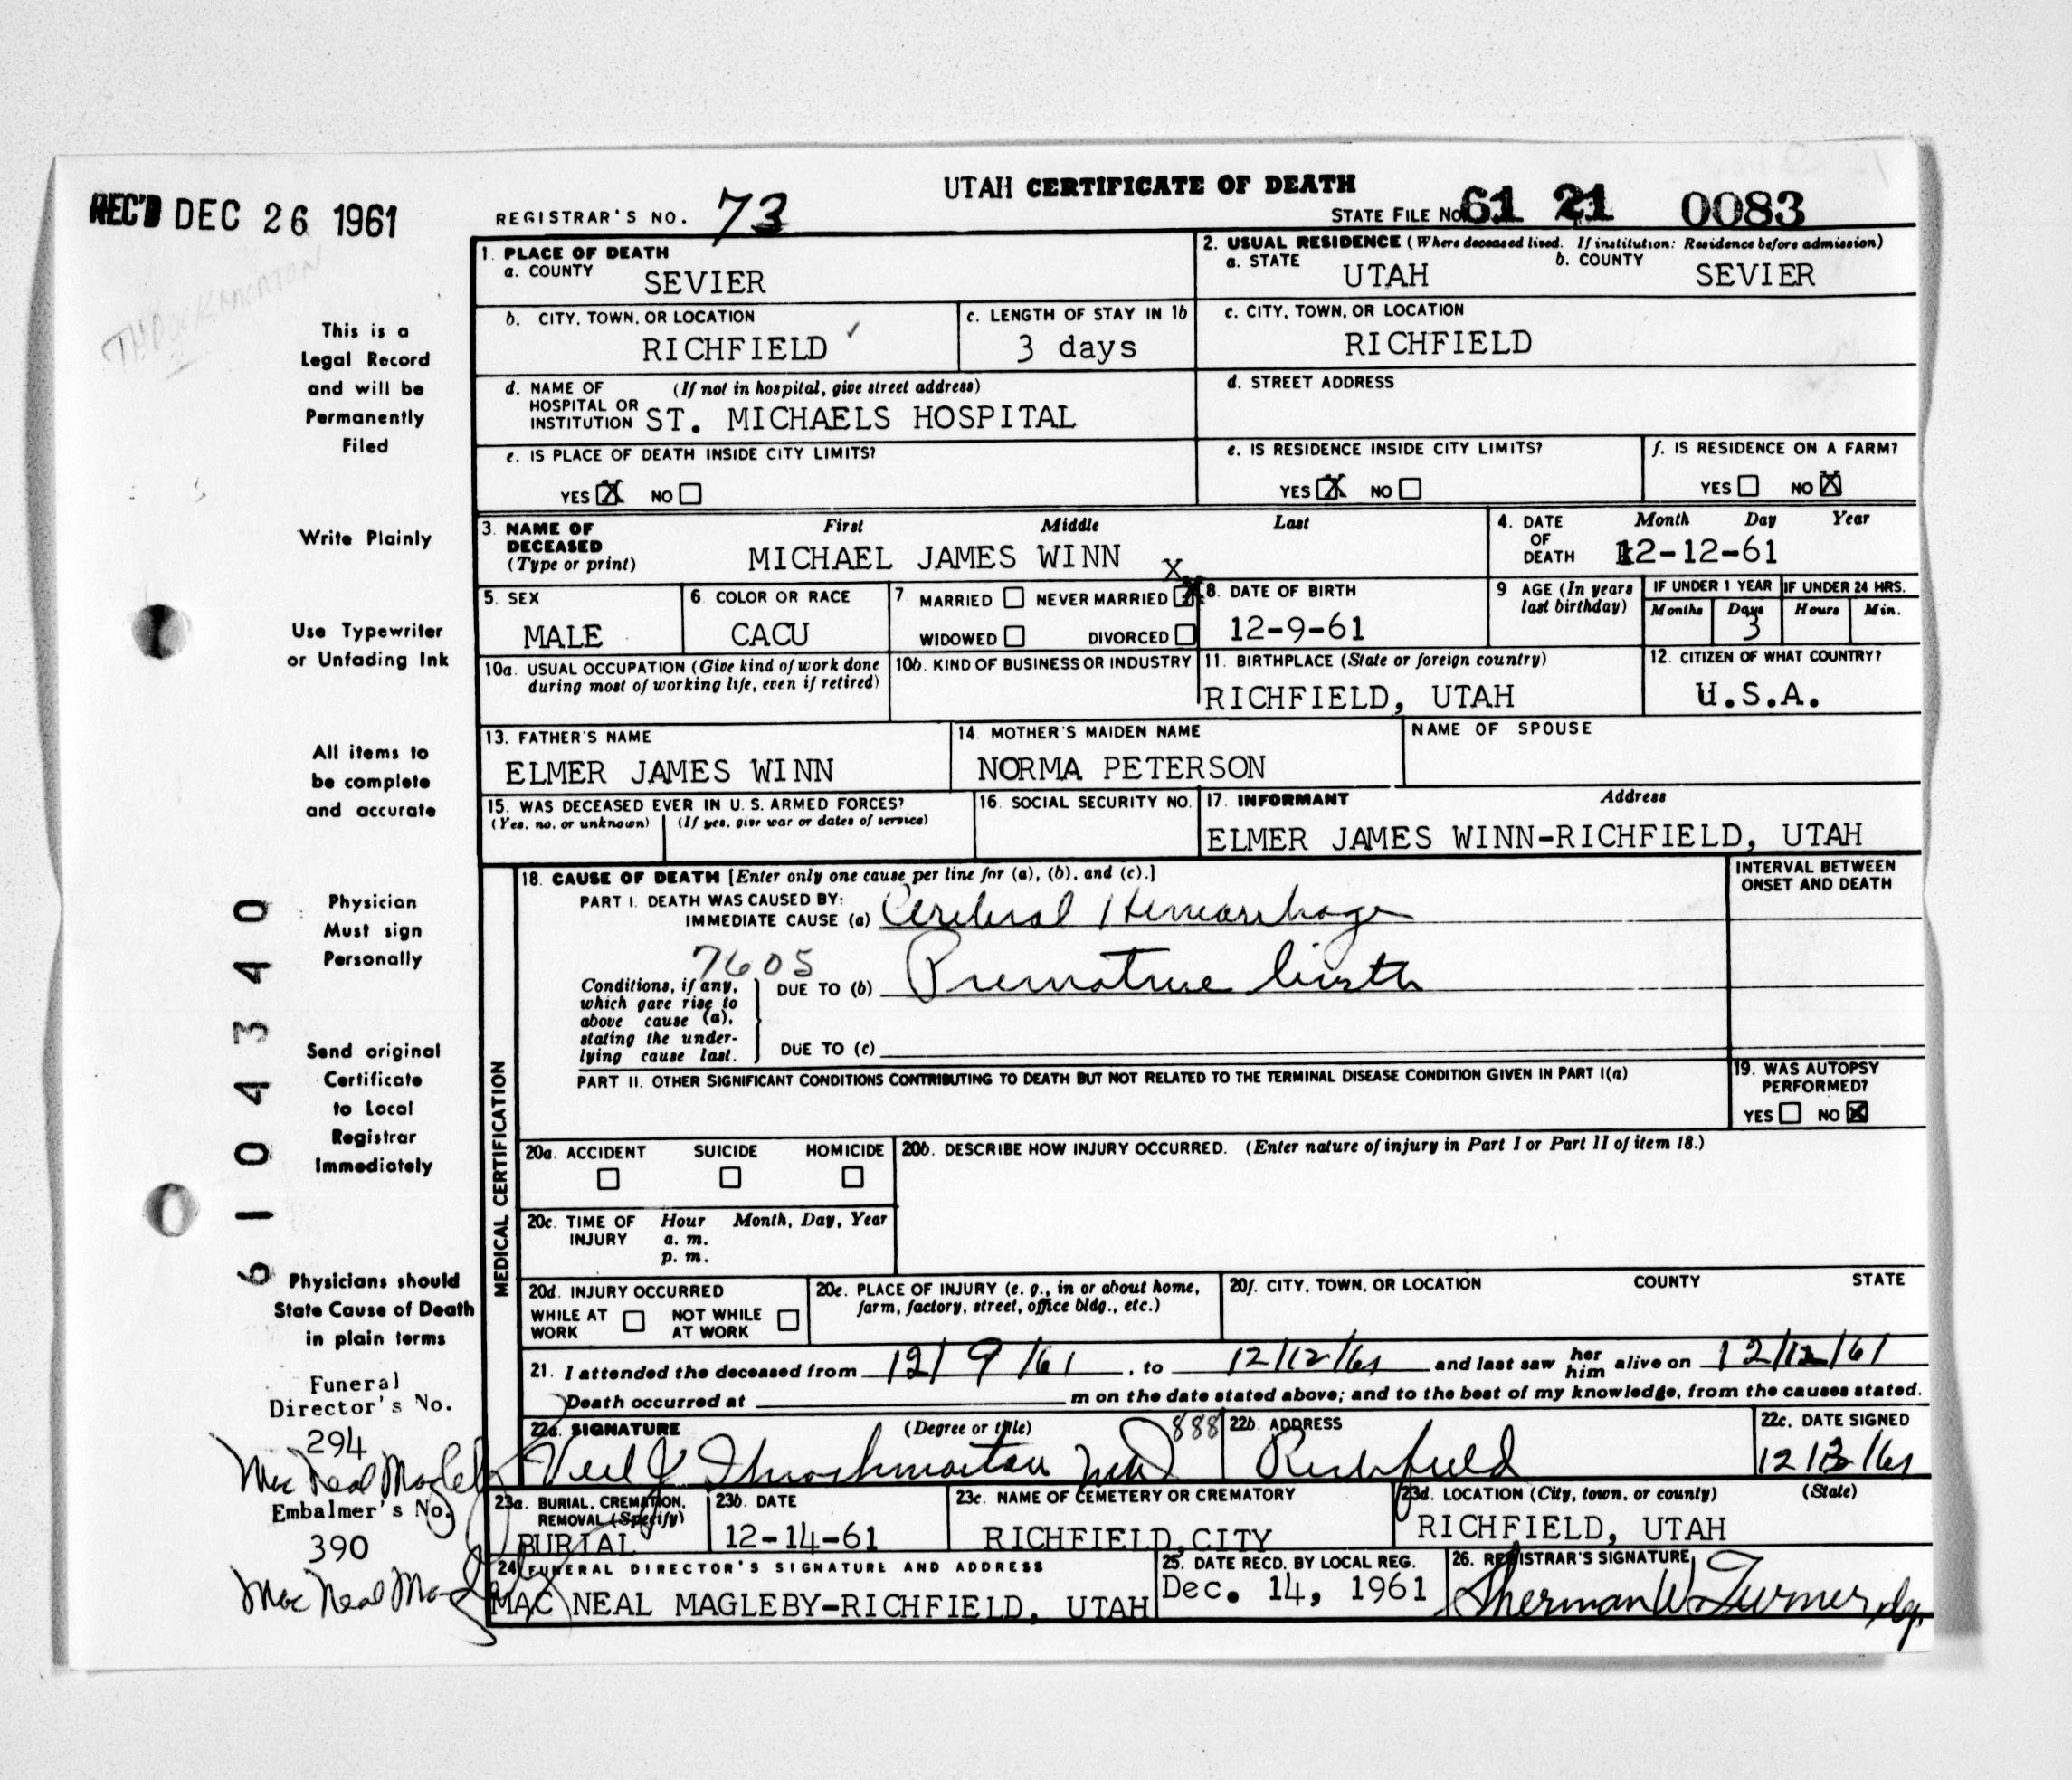 REC'D DEC 26 1961
UTAH CERTIFICATE OF DEATH
REGISTRAR'S NO. 73
STATE FILE NO. 61 21 0083
THROCKMORTON
This is a
Legal Record
and will be
Permanently
Filed
Write Plainly
Use Typewriter
or Unfading Ink
All items to
be complete
and accurate
Physician
Must sign
Personally
Send original
Certificate
to Local
Registrar
Immediately
Physicians should
State Cause of Death
in plain terms
Funeral
Director's No.
294
Mac Neal Magleby
Embalmer's No.
390
Mac Neal Magleby
6104340
1. PLACE OF DEATH
a. COUNTY SEVIER
2. USUAL RESIDENCE (Where deceased lived. If institution: Residence before admission)
a. STATE UTAH b. COUNTY SEVIER
b. CITY, TOWN, OR LOCATION
RICHFIELD ✓
c. LENGTH OF STAY IN 1b
3 days
c. CITY, TOWN, OR LOCATION
RICHFIELD
d. NAME OF (If not in hospital, give street address)
HOSPITAL OR
INSTITUTION ST. MICHAELS HOSPITAL
d. STREET ADDRESS
e. IS PLACE OF DEATH INSIDE CITY LIMITS?
YES X NO
e. IS RESIDENCE INSIDE CITY LIMITS?
YES X NO
f. IS RESIDENCE ON A FARM?
YES NO X
3. NAME OF First Middle Last
DECEASED
(Type or print) MICHAEL JAMES WINN
4. DATE Month Day Year
OF
DEATH 12-12-61
5. SEX
MALE
6. COLOR OR RACE
CACU
7. MARRIED NEVER MARRIED X
WIDOWED DIVORCED
8. DATE OF BIRTH
12-9-61
9 AGE (In years
last birthday)
IF UNDER 1 YEAR IF UNDER 24 HRS.
Months Days Hours Min.
3
10a. USUAL OCCUPATION (Give kind of work done
during most of working life, even if retired)
10b. KIND OF BUSINESS OR INDUSTRY
11. BIRTHPLACE (State or foreign country)
RICHFIELD, UTAH
12. CITIZEN OF WHAT COUNTRY?
U.S.A.
13. FATHER'S NAME
ELMER JAMES WINN
14. MOTHER'S MAIDEN NAME
NORMA PETERSON
NAME OF SPOUSE
15. WAS DECEASED EVER IN U.S. ARMED FORCES?
(Yes, no, or unknown) (If yes, give war or dates of service)
16. SOCIAL SECURITY NO.
17. INFORMANT Address
ELMER JAMES WINN-RICHFIELD, UTAH
MEDICAL CERTIFICATION
18. CAUSE OF DEATH [Enter only one cause per line for (a), (b), and (c).]
PART I. DEATH WAS CAUSED BY:
IMMEDIATE CAUSE (a) Cerebral Hemorrhage
INTERVAL BETWEEN
ONSET AND DEATH
7605
Conditions, if any,
which gave rise to
above cause (a),
stating the under-
lying cause last.
DUE TO (b) Premature birth
DUE TO (c)
PART II. OTHER SIGNIFICANT CONDITIONS CONTRIBUTING TO DEATH BUT NOT RELATED TO THE TERMINAL DISEASE CONDITION GIVEN IN PART I(a)
19. WAS AUTOPSY
PERFORMED?
YES NO X
20a. ACCIDENT SUICIDE HOMICIDE
20b. DESCRIBE HOW INJURY OCCURRED. (Enter nature of injury in Part I or Part II of item 18.)
20c. TIME OF Hour Month, Day, Year
INJURY a. m.
p. m.
20d. INJURY OCCURRED
WHILE AT NOT WHILE
WORK AT WORK
20e. PLACE OF INJURY (e. g., in or about home,
farm, factory, street, office bldg., etc.)
20f. CITY, TOWN, OR LOCATION COUNTY STATE
21. I attended the deceased from 12/9/61, to 12/12/61 and last saw her him alive on 12/12/61
Death occurred at m on the date stated above; and to the best of my knowledge, from the causes stated.
22a. SIGNATURE (Degree or title) 888
Veil J Throckmorton MD
22b. ADDRESS
Richfield
22c. DATE SIGNED
12/13/61
23a. BURIAL, CREMATION,
REMOVAL (Specify)
BURIAL
23b. DATE
12-14-61
23c. NAME OF CEMETERY OR CREMATORY
RICHFIELD CITY
23d. LOCATION (City, town, or county) (State)
RICHFIELD, UTAH
24. FUNERAL DIRECTOR'S SIGNATURE AND ADDRESS
MAC NEAL MAGLEBY-RICHFIELD, UTAH
25. DATE RECD. BY LOCAL REG.
Dec. 14, 1961
26. REGISTRAR'S SIGNATURE
Sherman W. Turner